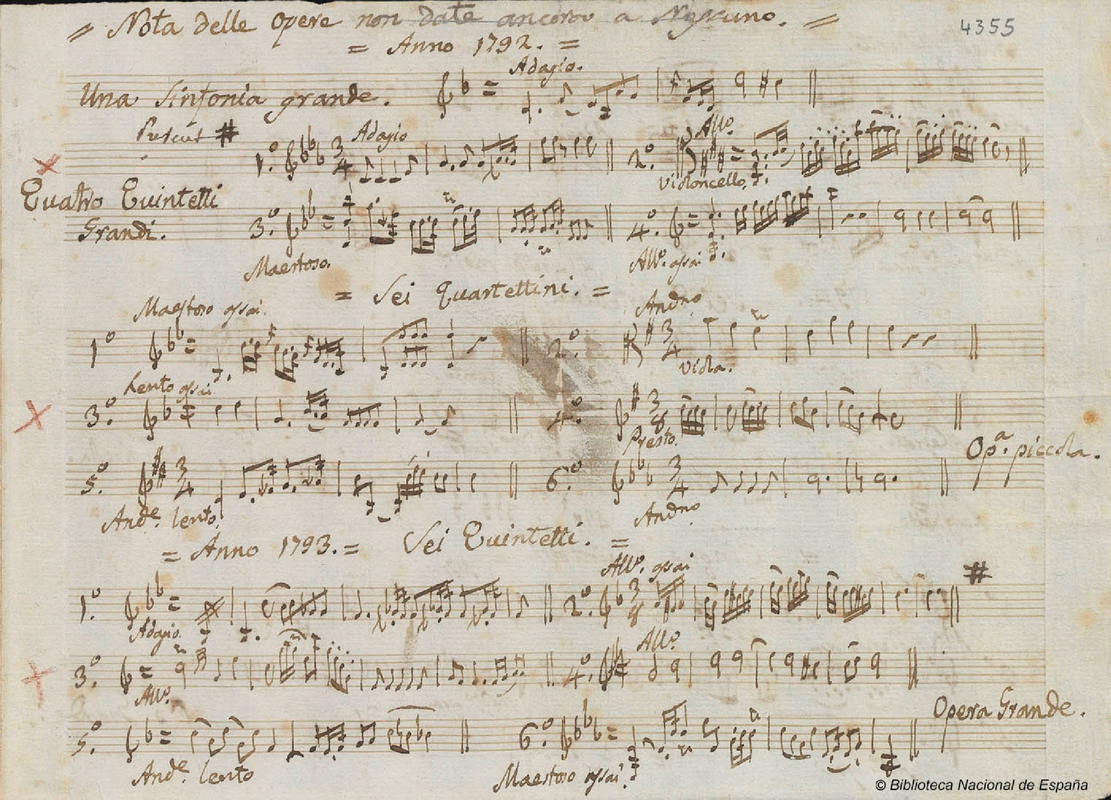 = Nota delle Opere non date ancora a Nessuno. =
4355
= Anno 1792. =
Una Sinfonia grande. Adagio.
1.º Adagio 2.º All.º Violoncello.
Quatro Quintetti
Grandi. 3.º Maestoso. 4.º All.º assai
= Sei Quartettini. =
1º Maestoso assai. 2.º Andno Viola.
3.º Lento assai 4.º Presto.
5.º And.e lento. 6.º Andno
Op.a piccola.
= Anno 1793. = Sei Quintetti. =
1.º Adagio. 2.º All.º assai
3.º All.º 4.º All.º
5.º And.e lento 6.º Maestoso assai
Opera Grande.
© Biblioteca Nacional de España